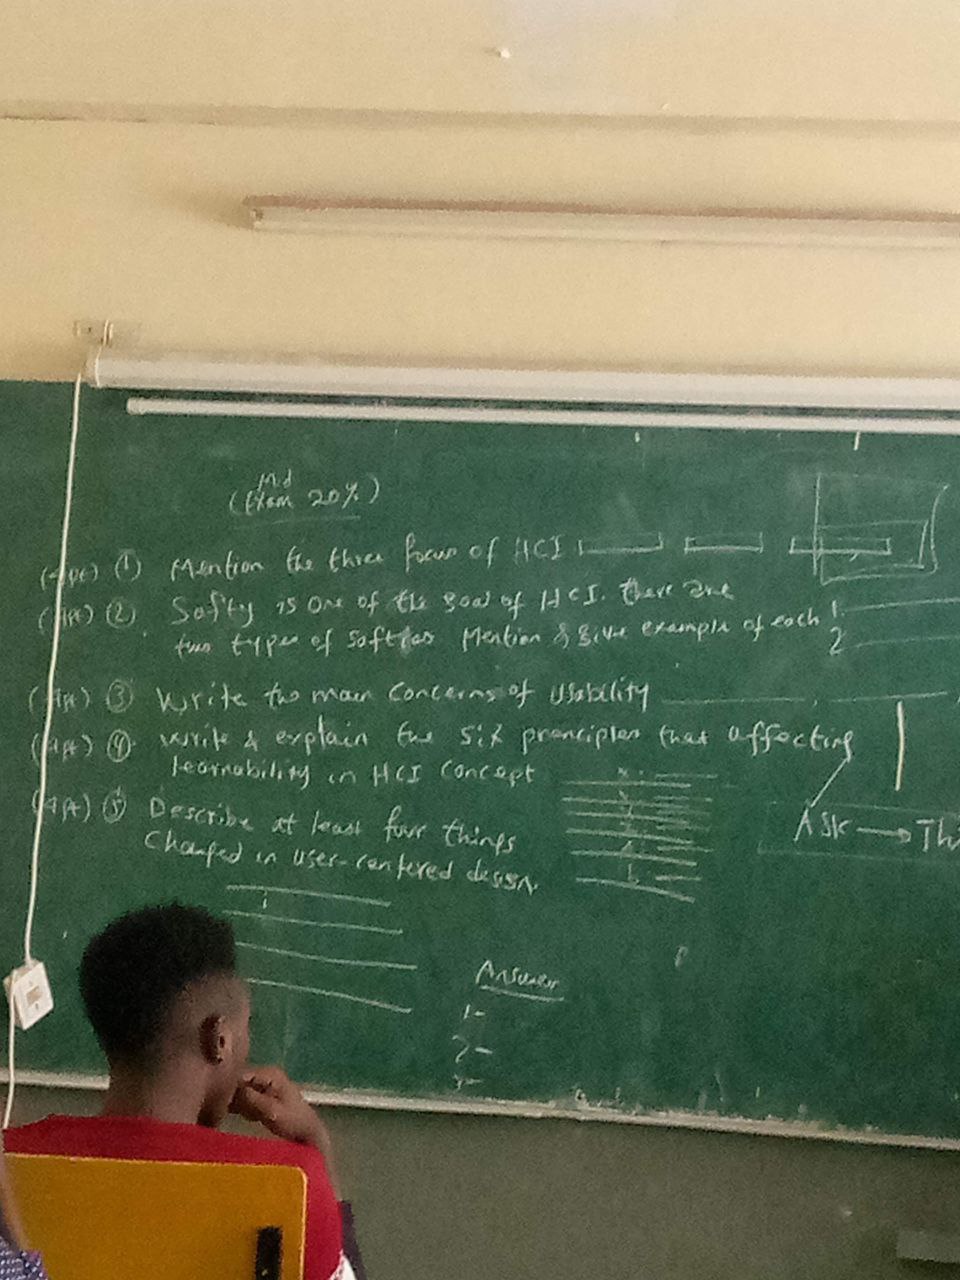 Mid
(Exam 20%)
(4pt) ① Mention the three focus of HCI
(4pt) ② Safty is one of the goal of HCI. there are
two types of safties Mention & give example of each 1.
2
(4pt) ③ Write the main concerns of Usability
(4pt) ④ Write & explain the six principles that affecting
learnability in HCI concept
(4pt) ⑤ Describe at least four things
Changed in user-centered design.
1
Ask → Thi
Answer
1-
2-
3-